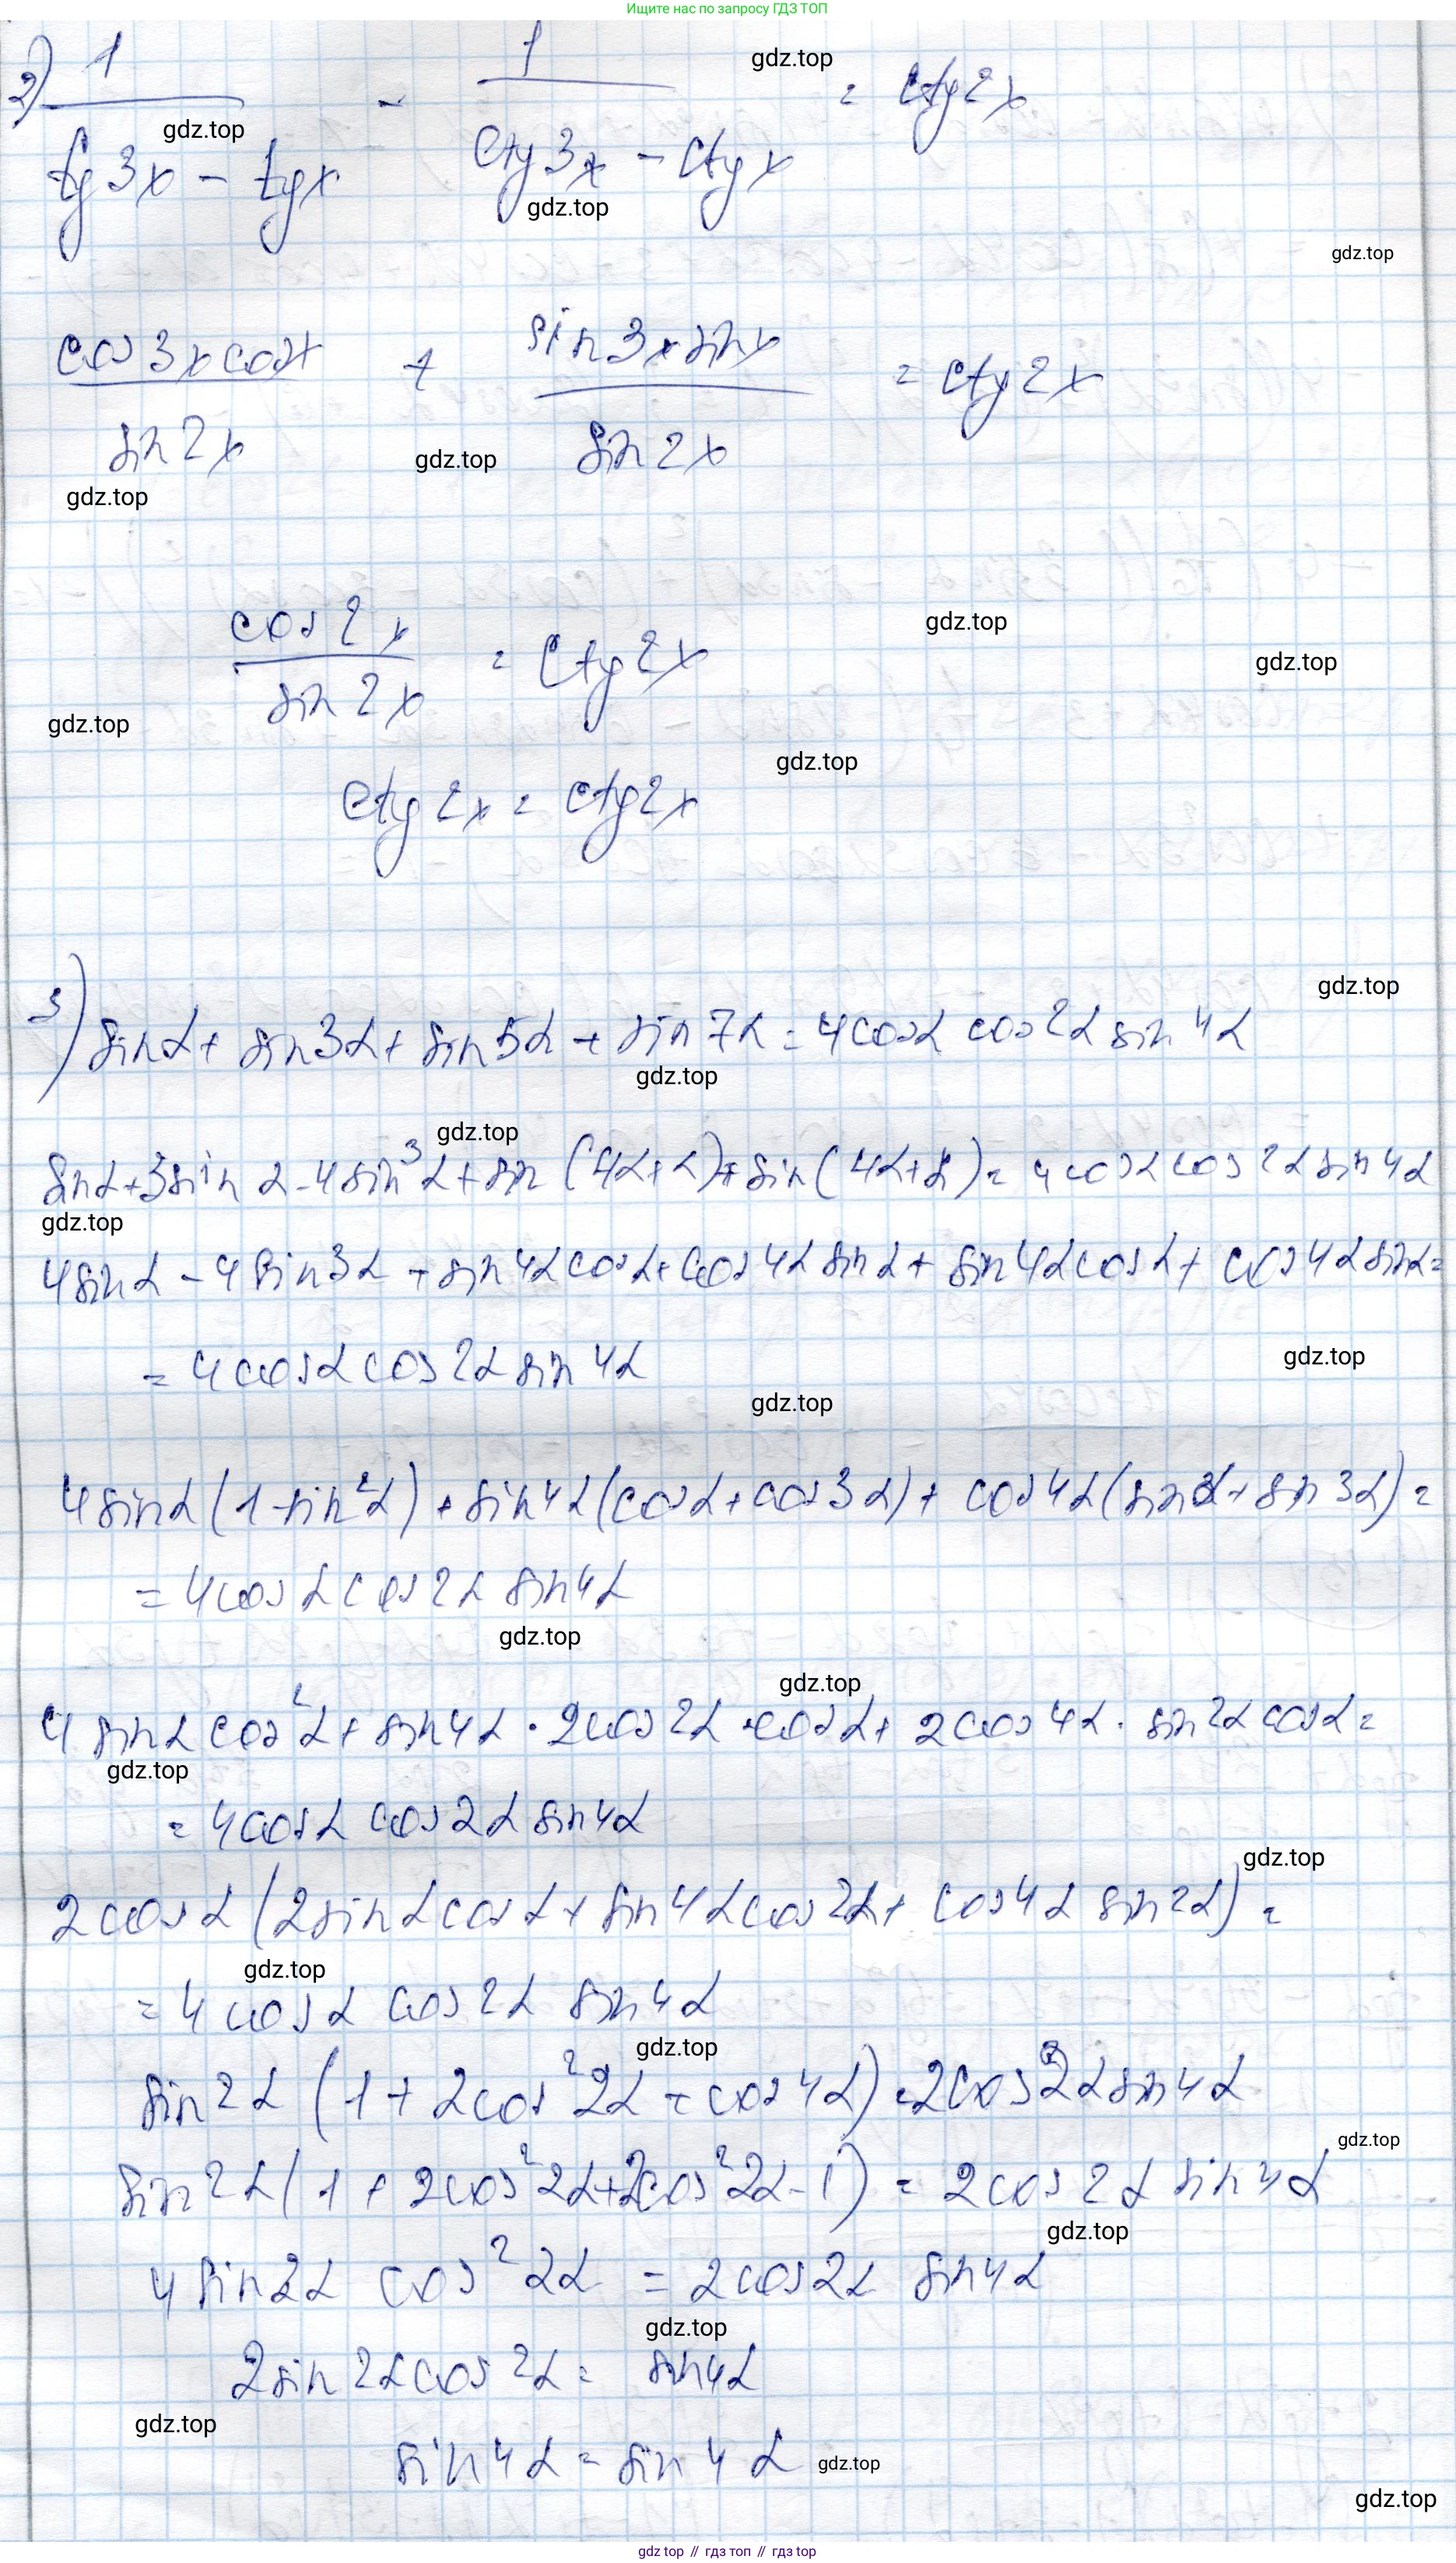 Ищите нас по запросу ГДЗ ТОП
2) 1/(tg3x - tgx) - 1/(ctg3x - ctgx) = ctg2x
gdz.top
gdz.top
gdz.top
gdz.top
cos3xcosx/sin2x + sin3xsinx/sin2x = ctg2x
gdz.top
gdz.top
cos2x/sin2x = ctg2x
gdz.top
gdz.top
gdz.top
gdz.top
ctg2x = ctg2x
gdz.top
3) sinα + sin3α + sin5α + sin7α = 4cosα cos2α sin4α
gdz.top
gdz.top
sinα + 3sinα - 4sin³α + sin(4α+α) + sin(4α+α) = 4cosα cos2α sin4α
gdz.top
4sinα - 4sin3α + sin4αcosα + cos4α sinα + sin4αcosα + cos4αsinα =
= 4cosα cos2α sin4α
gdz.top
gdz.top
4sinα(1-sin²α) + sin4α(cosα + cos3α) + cos4α(sinα + sin3α) =
= 4cosα cos2α sin4α
gdz.top
gdz.top
4 sinα cos²α + sin4α · 2cos2α · cosα + 2cos4α · sin2α cosα =
gdz.top
= 4cosα cos2α sin4α
gdz.top
2cosα (2sinαcosα + sin4αcos2α + cos4α sin2α) =
gdz.top
= 4cosα cos2α sin4α
gdz.top
sin2α (1 + 2cos²2α + cos4α) = 2cos2α sin4α
gdz.top
sin2α (1 + 2cos²2α + 2cos²2α - 1) = 2cos2α sin4α
gdz.top
4 sin2α cos²2α = 2cos2α sin4α
gdz.top
2sin2αcos2α = sin4α
gdz.top
sin4α = sin4α
gdz.top
gdz.top
gdz top // гдз топ // гдз top